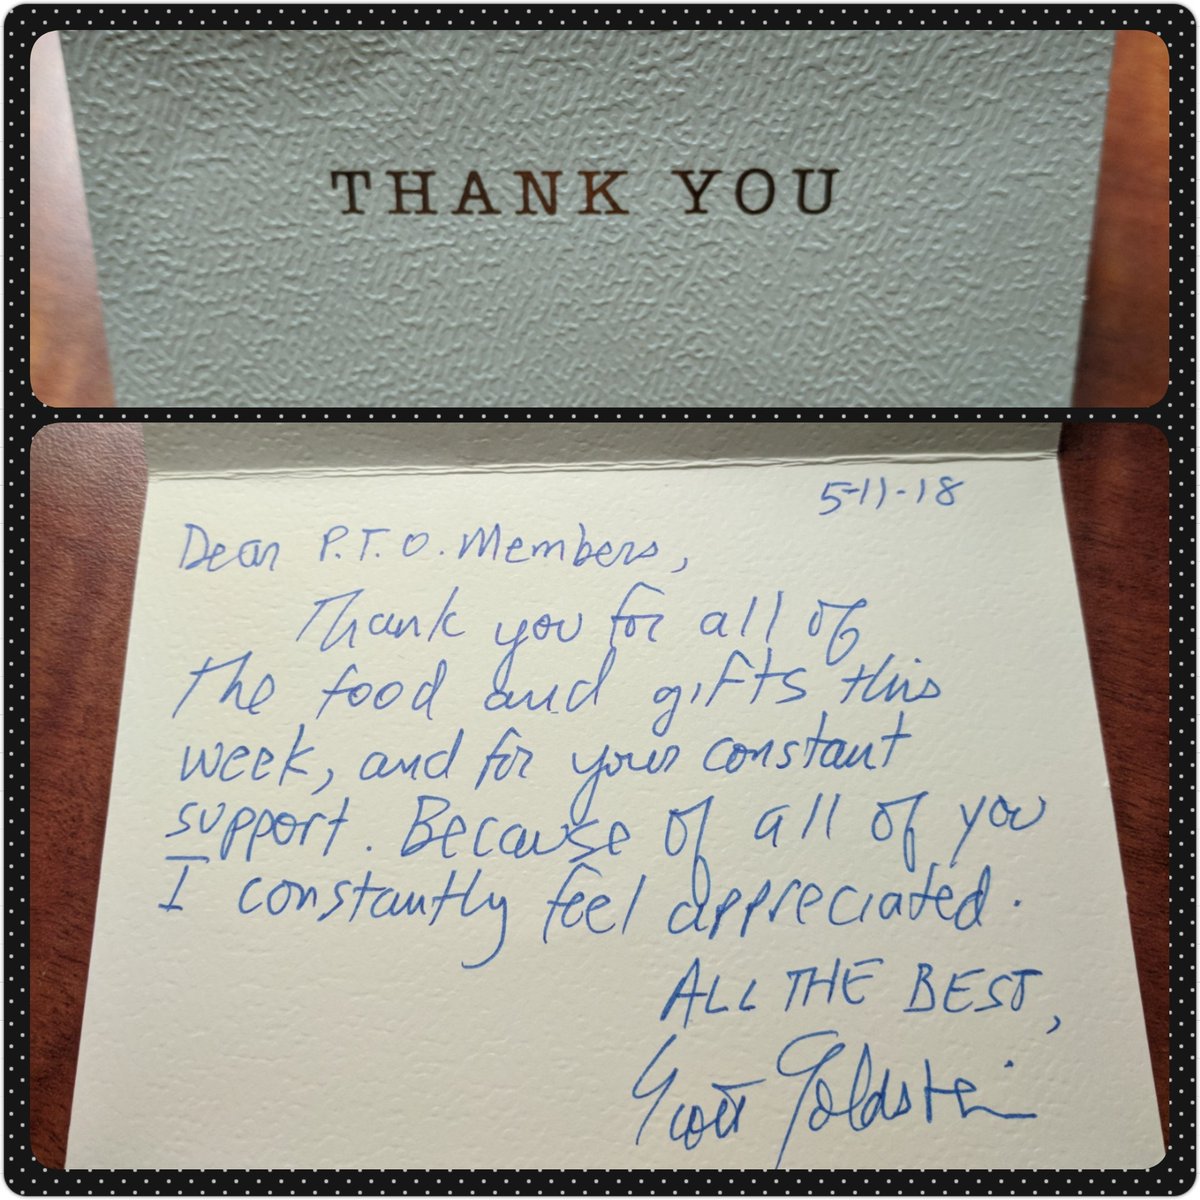 THANK YOU
5-11-18
Dear P.T.O. Members,
Thank you for all of
the food and gifts this
week, and for your constant
support. Because of all of you
I constantly feel appreciated.
ALL THE BEST,
Scott Goldstein